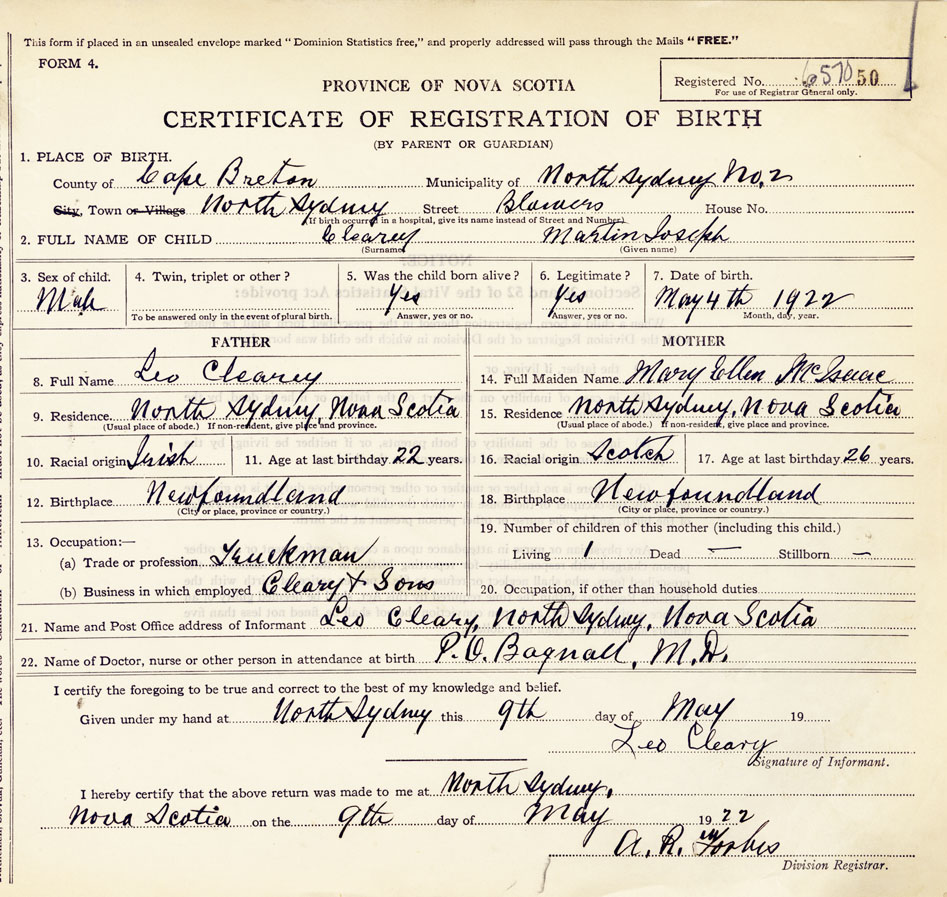 This form if placed in an unsealed envelope marked "Dominion Statistics free," and properly addressed will pass through the Mails "FREE."
FORM 4.
Registered No. 6570 50
For use of Registrar General only.
PROVINCE OF NOVA SCOTIA
CERTIFICATE OF REGISTRATION OF BIRTH
(BY PARENT OR GUARDIAN)
1. PLACE OF BIRTH.
County of Cape Breton Municipality of North Sydney No. 2
City, Town or Village North Sydney Street Blowers House No.
(If birth occurred in a hospital, give its name instead of Street and Number)
2. FULL NAME OF CHILD Clearey Martin Joseph
(Surname) (Given name)
3. Sex of child. 4. Twin, triplet or other? 5. Was the child born alive? 6. Legitimate? 7. Date of birth.
Male Yes Yes May 4th 1922
To be answered only in the event of plural birth. Answer, yes or no. Answer, yes or no. Month, day, year.
FATHER MOTHER
8. Full Name Leo Clearey 14. Full Maiden Name Mary Ellen McIsaac
9. Residence. North Sydney, Nova Scotia 15. Residence North Sydney, Nova Scotia
(Usual place of abode.) If non-resident, give place and province. (Usual place of abode.) If non-resident, give place and province.
10. Racial origin Irish 11. Age at last birthday 22 years. 16. Racial origin Scotch 17. Age at last birthday 26 years.
12. Birthplace Newfoundland 18. Birthplace Newfoundland
(City or place, province or country.) (City or place, province or country.)
13. Occupation:— 19. Number of children of this mother (including this child.)
(a) Trade or profession Truckman Living 1 Dead — Stillborn —
(b) Business in which employed Cleary & Sons 20. Occupation, if other than household duties
21. Name and Post Office address of Informant Leo Cleary, North Sydney, Nova Scotia
22. Name of Doctor, nurse or other person in attendance at birth P.O. Bagnall, M.D.
I certify the foregoing to be true and correct to the best of my knowledge and belief.
Given under my hand at North Sydney this 9th day of May 19
Leo Cleary
Signature of Informant.
I hereby certify that the above return was made to me at North Sydney,
Nova Scotia on the 9th day of May 1922
A. R. Forbes
Division Registrar.